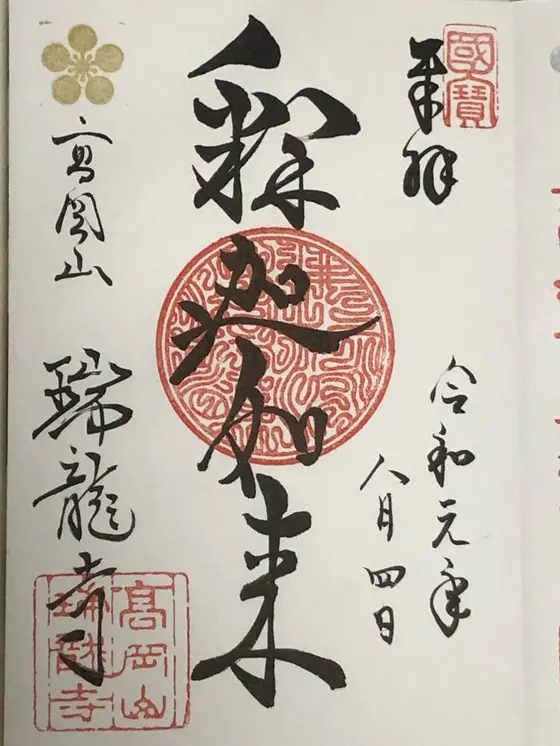 國寶
奉拝
令和元年
八月四日
釈迦如来
高岡山
瑞龍寺
高岡山
瑞龍寺